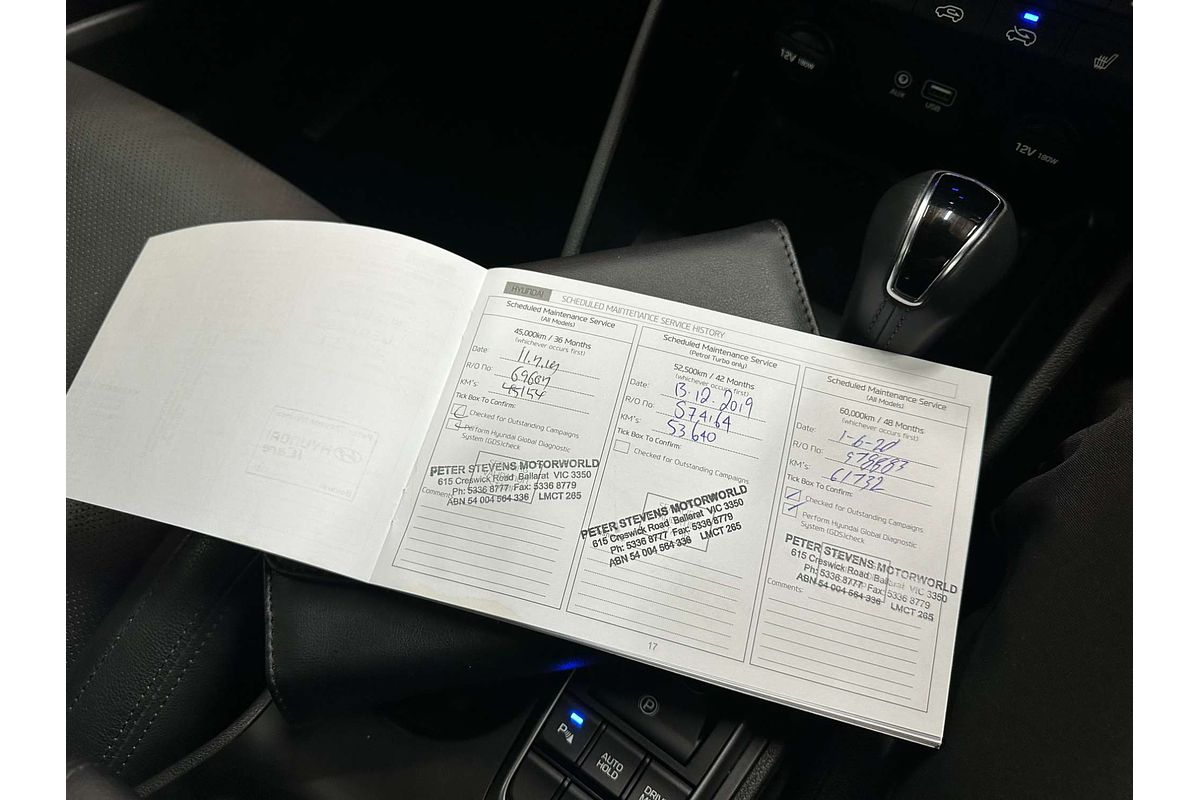 12V 180W
AUX
USB
12V 180W
HYUNDAI SCHEDULED MAINTENANCE SERVICE HISTORY
Scheduled Maintenance Service
(All Models)
45,000km / 36 Months
(whichever occurs first)
Date:
R/O No:
KM's: 45154
Tick Box To Confirm:
Checked for Outstanding Campaigns
Perform Hyundai Global Diagnostic
System (GDS)check
PETER STEVENS MOTORWORLD
615 Creswick Road Ballarat VIC 3350
Ph: 5336 8777 Fax: 5336 8779
ABN 54 004 564 336 LMCT 265
Comments:
Scheduled Maintenance Service
(Petrol Turbo only)
52,500km / 42 Months
(whichever occurs first)
Date: 13.12.2019
R/O No: 574164
KM's: 53640
Tick Box To Confirm:
Checked for Outstanding Campaigns
PETER STEVENS MOTORWORLD
615 Creswick Road Ballarat VIC 3350
Ph: 5336 8777 Fax: 5336 8779
ABN 54 004 564 336 LMCT 265
Scheduled Maintenance Service
(All Models)
60,000km / 48 Months
(whichever occurs first)
Date: 1-6-20
R/O No:
KM's: 61732
Tick Box To Confirm:
Checked for Outstanding Campaigns
Perform Hyundai Global Diagnostic
System (GDS)check
PETER STEVENS MOTORWORLD
615 Creswick Road Ballarat VIC 3350
Ph: 5336 8777 Fax: 5336 8779
ABN 54 004 564 336 LMCT 265
Comments:
17
P
P
AUTO
HOLD